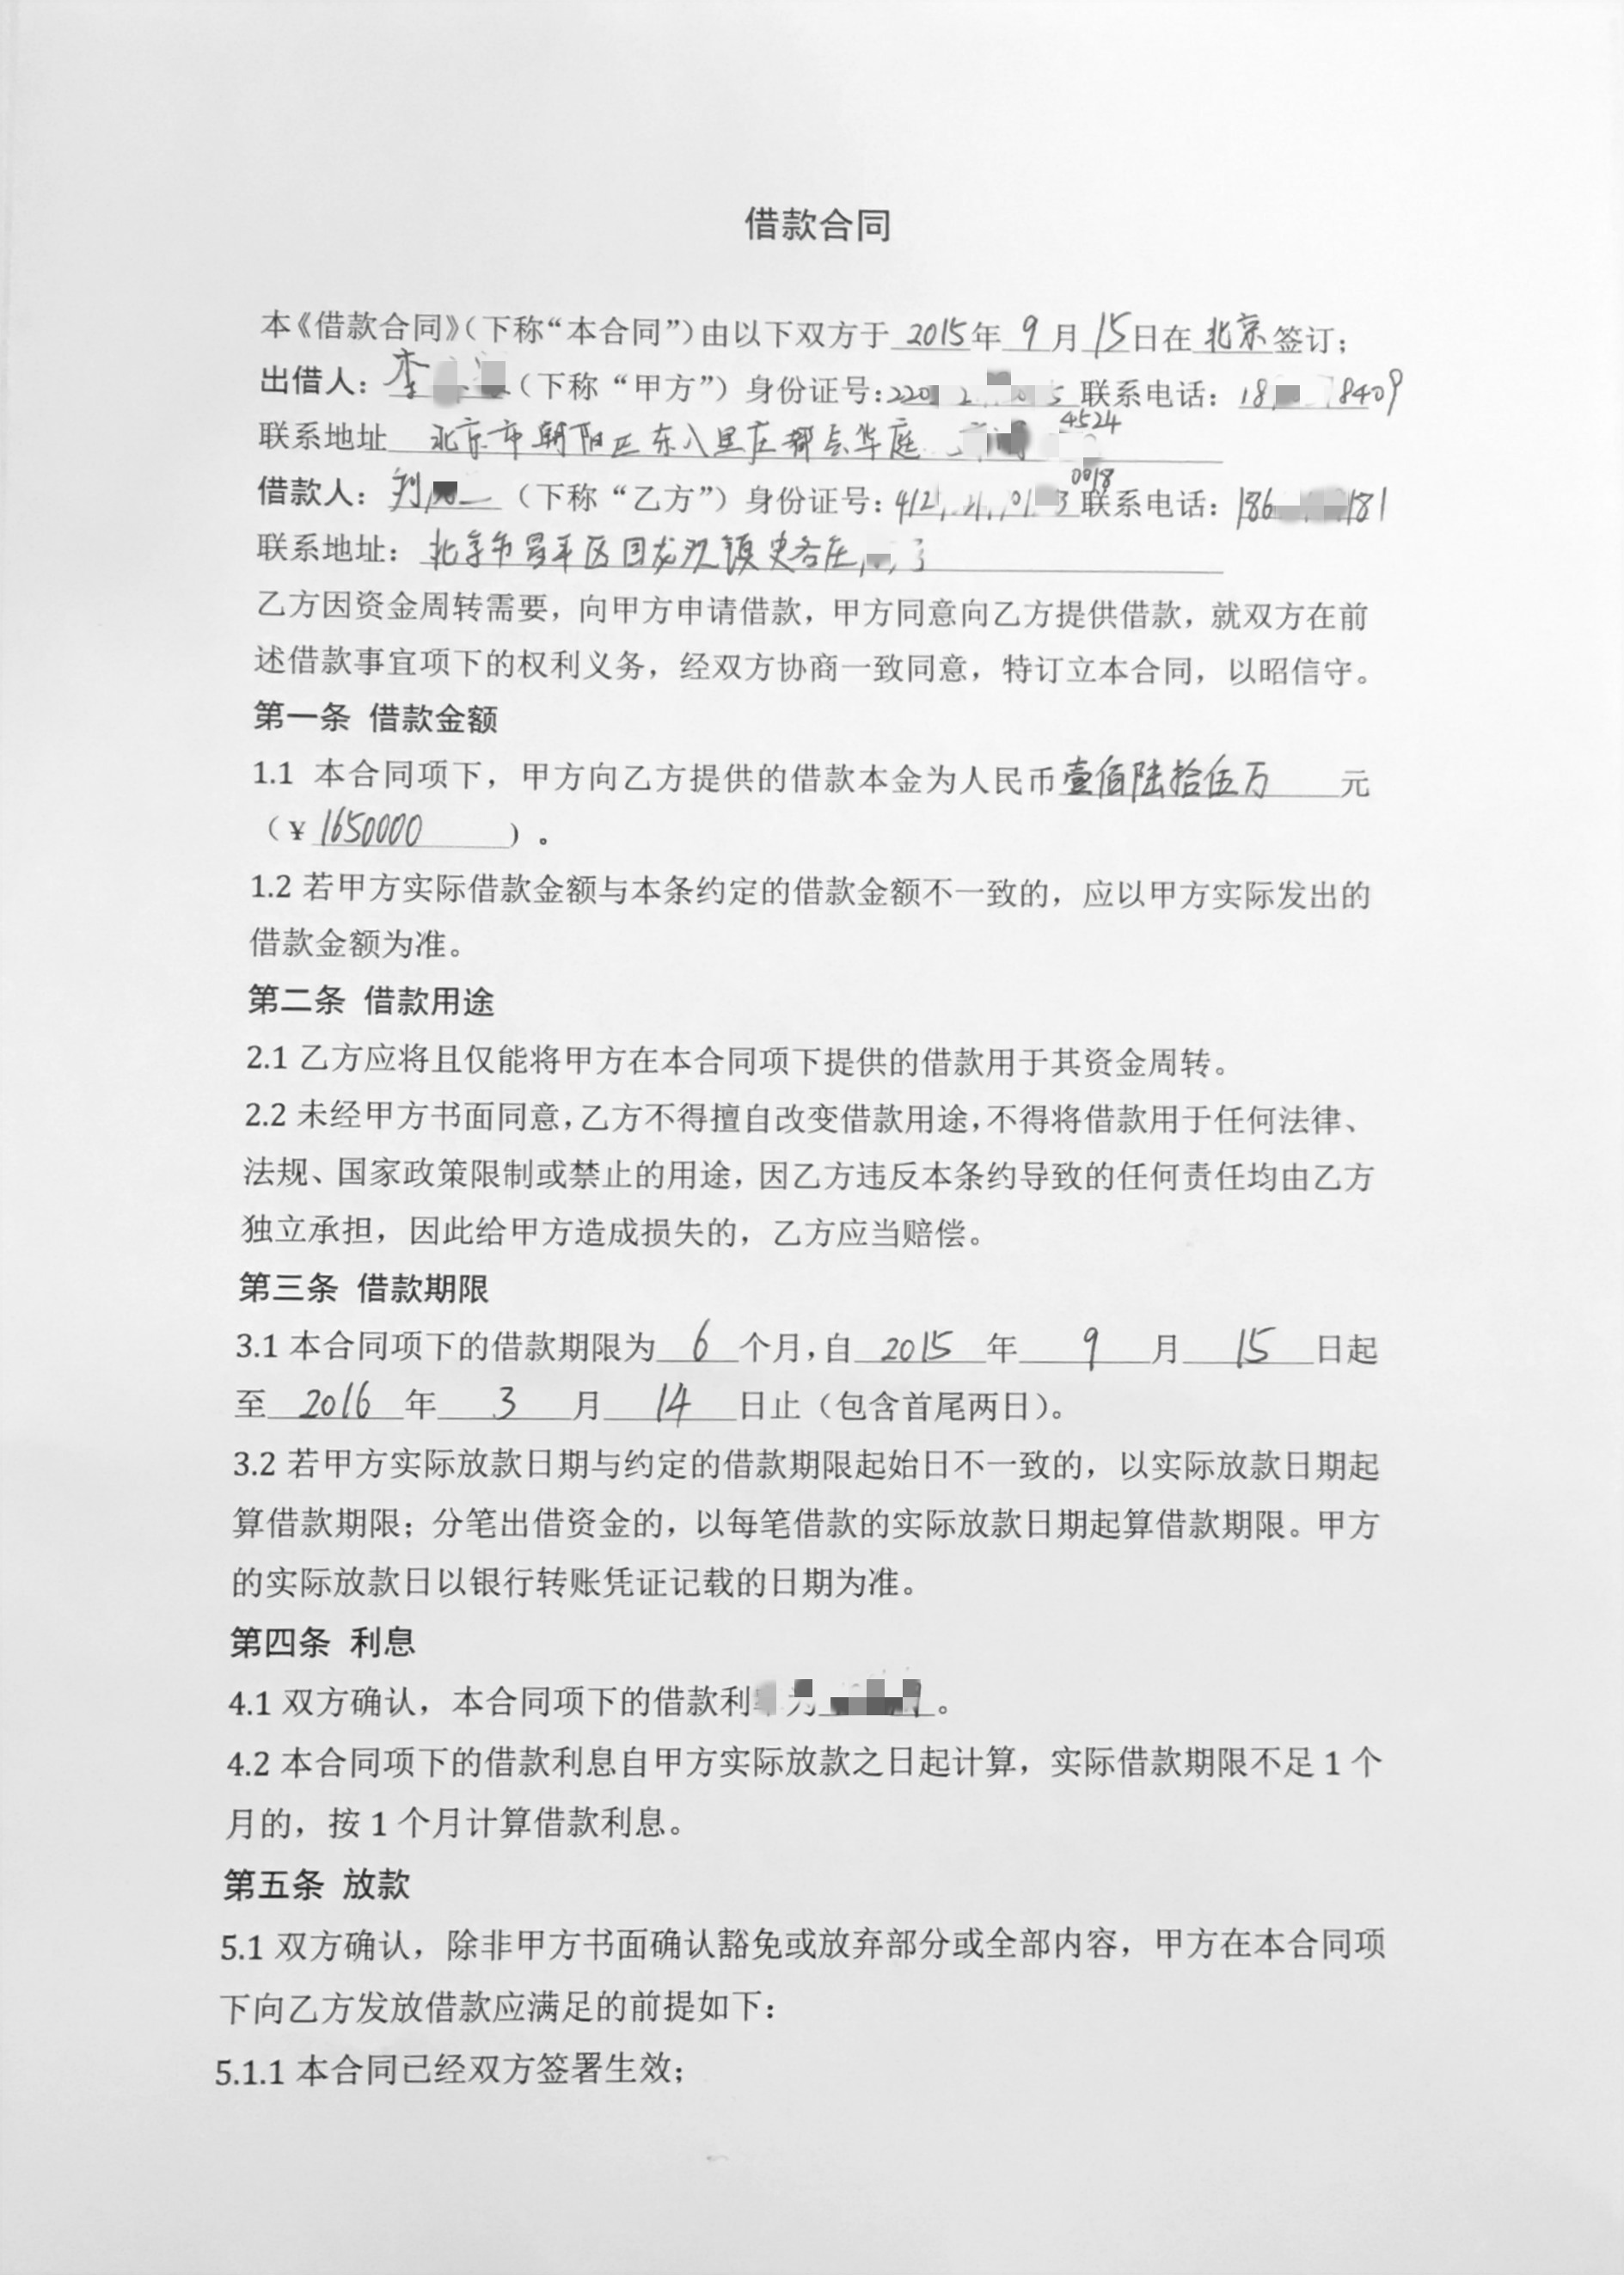 借款合同
本《借款合同》（下称“本合同”）由以下双方于 2015年 9 月 15日在 北京 签订；
出借人： 李 （下称“甲方”）身份证号：220 联系电话： 18 8409
联系地址 北京市朝阳区东八里庄都会华庭 4524
借款人： 刘 （下称“乙方”）身份证号：412 0018 联系电话： 186 181
联系地址： 北京市昌平区回龙观镇史各庄
乙方因资金周转需要，向甲方申请借款，甲方同意向乙方提供借款，就双方在前
述借款事宜项下的权利义务，经双方协商一致同意，特订立本合同，以昭信守。
第一条 借款金额
1.1 本合同项下，甲方向乙方提供的借款本金为人民币壹佰陆拾伍万 元
（¥ 1650000 ）。
1.2 若甲方实际借款金额与本条约定的借款金额不一致的，应以甲方实际发出的
借款金额为准。
第二条 借款用途
2.1 乙方应将且仅能将甲方在本合同项下提供的借款用于其资金周转。
2.2 未经甲方书面同意，乙方不得擅自改变借款用途，不得将借款用于任何法律、
法规、国家政策限制或禁止的用途，因乙方违反本条约导致的任何责任均由乙方
独立承担，因此给甲方造成损失的，乙方应当赔偿。
第三条 借款期限
3.1 本合同项下的借款期限为 6 个月，自 2015 年 9 月 15 日起
至 2016 年 3 月 14 日止（包含首尾两日）。
3.2 若甲方实际放款日期与约定的借款期限起始日不一致的，以实际放款日期起
算借款期限；分笔出借资金的，以每笔借款的实际放款日期起算借款期限。甲方
的实际放款日以银行转账凭证记载的日期为准。
第四条 利息
4.1 双方确认，本合同项下的借款利 为 。
4.2 本合同项下的借款利息自甲方实际放款之日起计算，实际借款期限不足 1 个
月的，按 1 个月计算借款利息。
第五条 放款
5.1 双方确认，除非甲方书面确认豁免或放弃部分或全部内容，甲方在本合同项
下向乙方发放借款应满足的前提如下：
5.1.1 本合同已经双方签署生效；